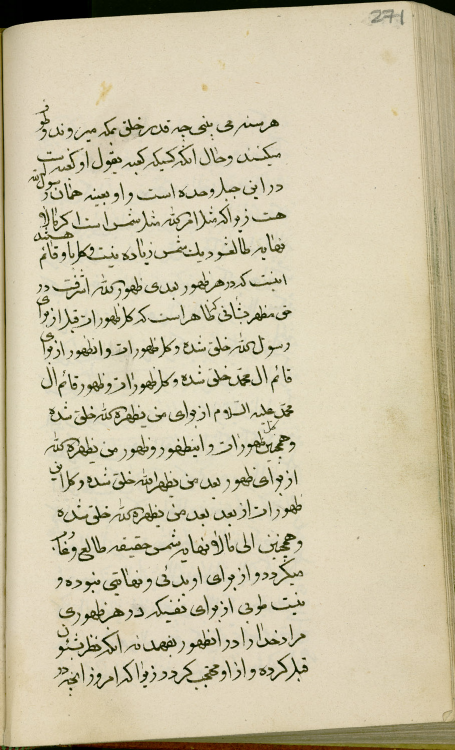 271
هر سنه می بینی چه قدر خلق بمکه میروند و طوف
میکنند و حال آنکه کسیکه کعبه بقول او کعبه است
در این جبل وحده است و او بعینه همان رسول الله
هست زیرا که مثل امر الله مثل شمس است اگر بالا
نهایه طالع شود یک شمس زیاده نیست و کل باو قائم هستند
اینست که در هر ظهور بعدی ظهور الله اشرفست در
مظهر ثانی ظاهر است که کل ظهورات قبل از برای
رسول الله خلق شده و کل ظهورات و آن ظهور از برای
قائم آل محمد خلق شده و کل ظهورات و ظهور قائم آل
محمد علیه السلام از برای من یظهره الله خلق شده
و همچنین کل ظهورات و این ظهور و ظهور من یظهره الله
از برای ظهور بعد من یظهره الله خلق شده و کل این
ظهورات از بعد بعد من یظهره الله خلق شده
و همچنین الی مالا نهایه شمس حقیقه طالع و غارب
میگردد و از برای او بدئی و نهایتی نبوده و
نیست طوبی از برای نفسیکه در هر ظهوری
مراد خدا را در آن ظهور بفهمد نه آنکه نظر بشئون
قبل کرده و از او محتجب گردد زیرا که امروز آنچه در